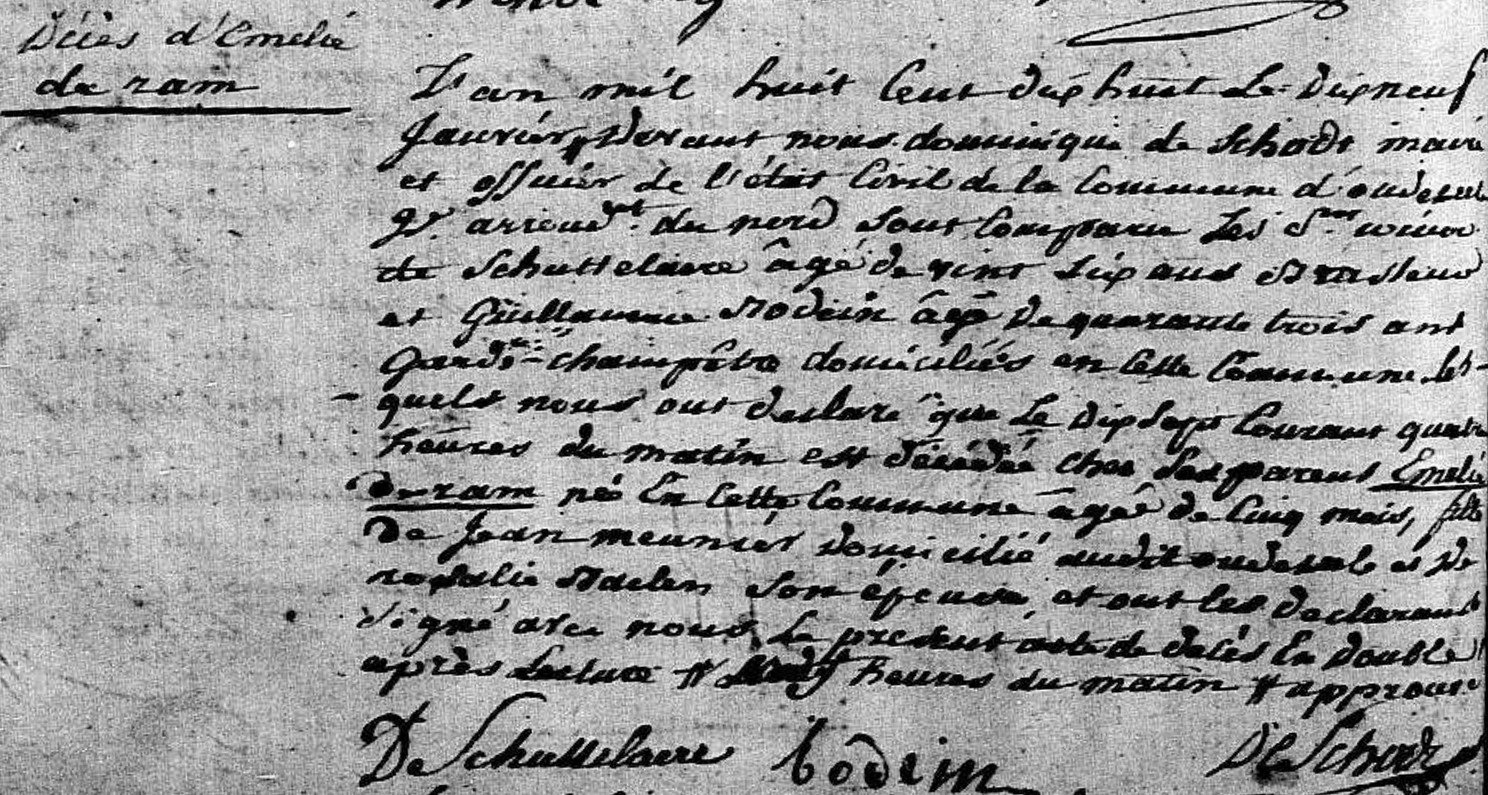 Décès d'Emelie
de ram
L'an mil huit Cent dix huit Le Dixneuf
Janvier # Devant nous dominique de Schodt maire
et officier de l'état Civil de la Commune d'oudezeele
arrond.nt du nord Sont Comparu Les S.rs
de Schuttelaere âgé de vint six ans Brasseur
et Guillaume Bodein âgé De quarante trois ans
garde-champêtre domiciliés en Cette Commune les-
quels nous ont declaré que Le Dixsept Courant quatre
heures du matin est décédée chez Ses parens Emelie
De ram né En Cette Commune âgé de Cinq mois, fille
De Jean meunier Domicilié audit oudezeele et De
rosalie Staelen Son épouse, et ont les Declarants
Signé avec nous Le present acte de décès En Double
après Lecture # heures du matin # approuvé
De Schuttelaere bodein De Schodt